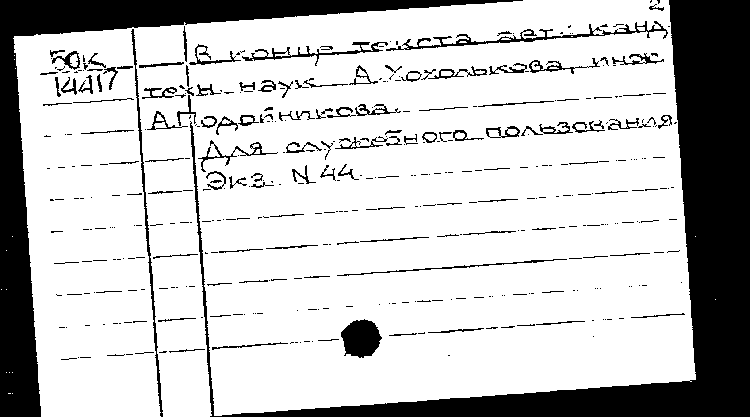 2
50к В конце текста авт.: канд.
14417 техн. наук А.Хохолькова, инж.
А.Подойникова.
Для служебного пользования
Экз. N 44